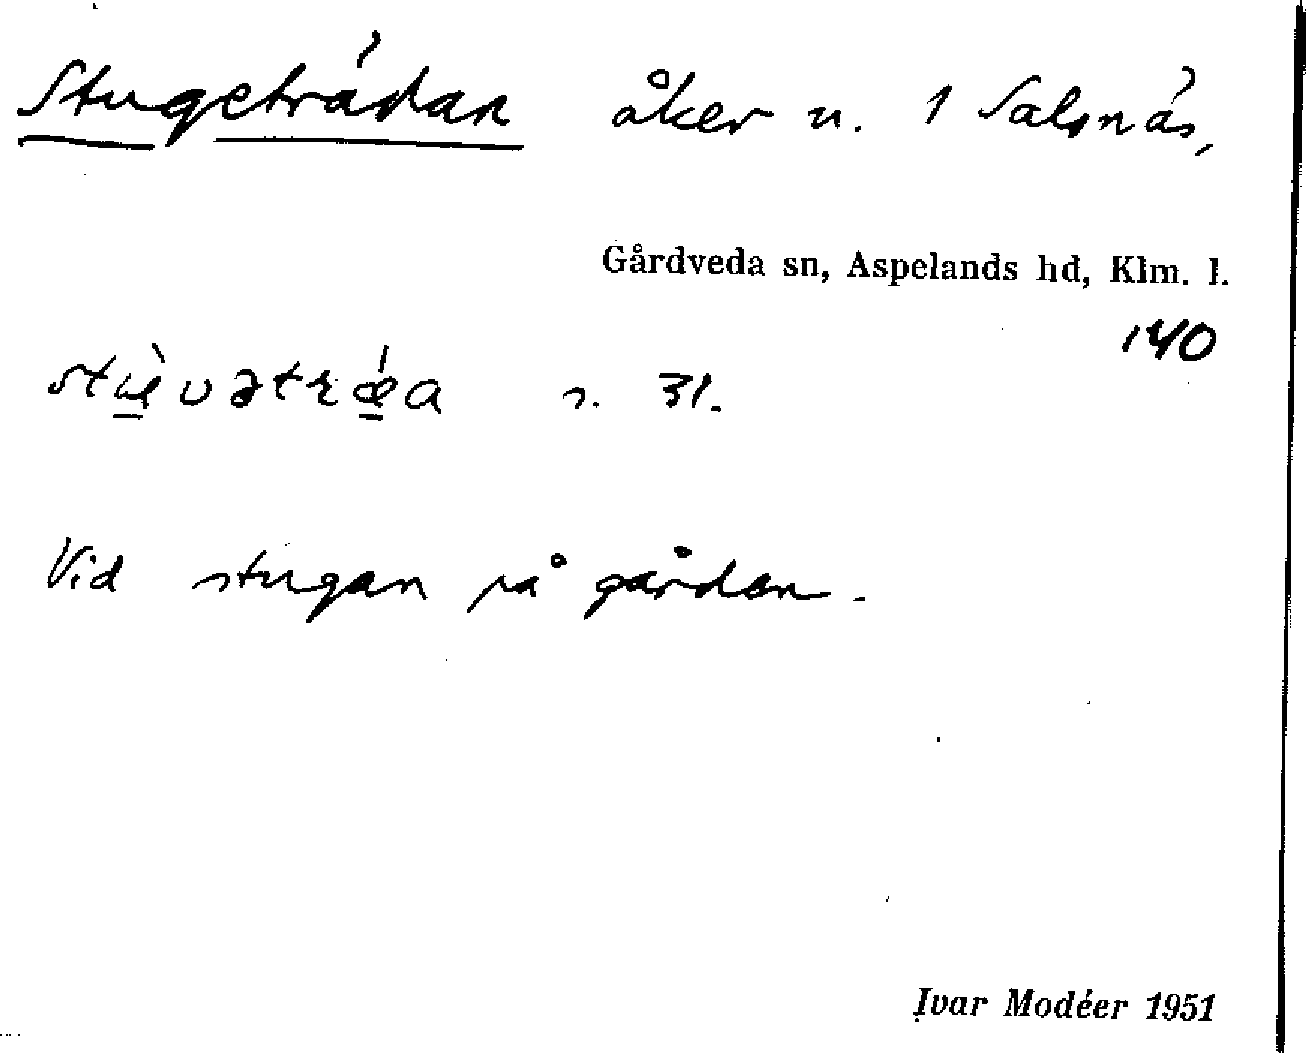 Stugeträdan åker u. 1 Salsnäs,
Gårdveda sn, Aspelands hd, Klm. l.
140
stù̲vətrǽ̲a s. 31.
Vid stugan på gården.
Ivar Modéer 1951